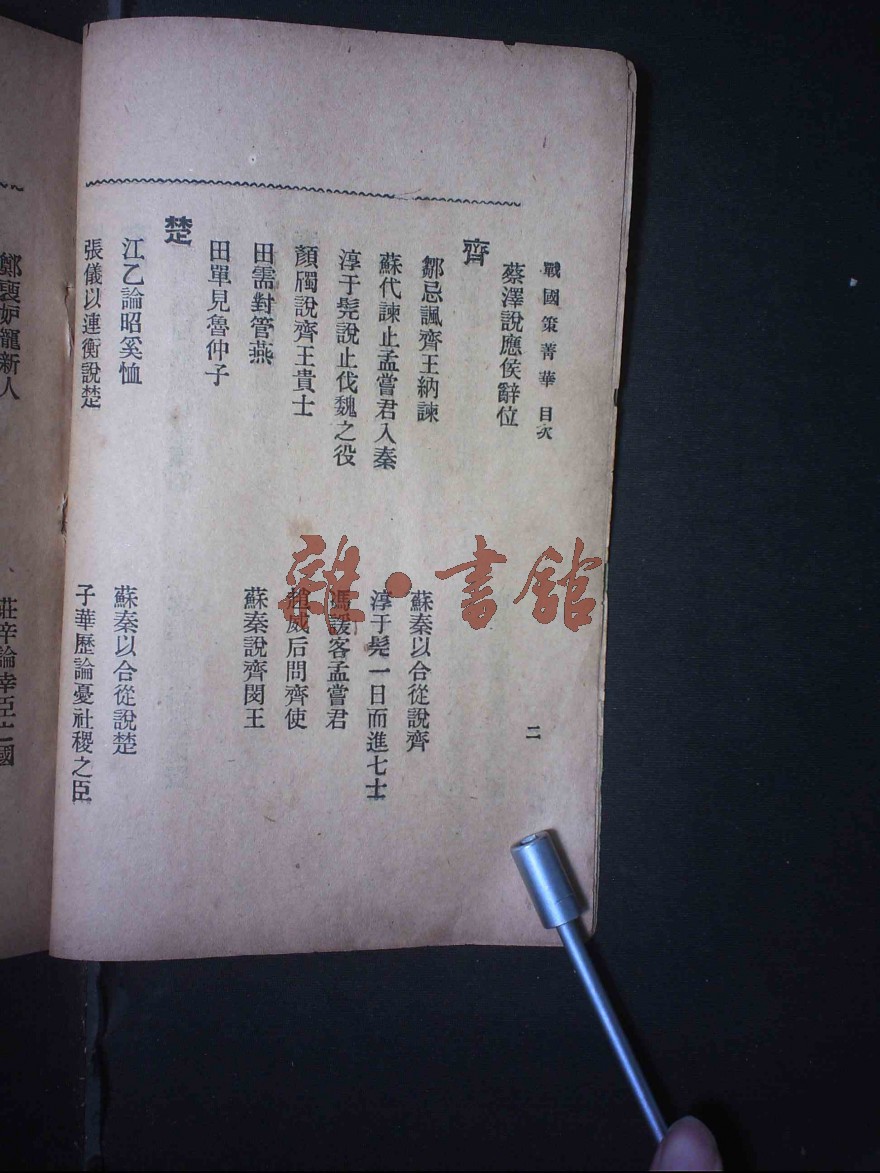 戰國策菁華 目次
二
蔡澤說應侯辭位
齊
鄒忌諷齊王納諫
蘇秦以合從說齊
蘇代諫止孟嘗君入秦
淳于髡一日而進七士
淳于髡說止伐魏之役
馮諼客孟嘗君
顏斶說齊王貴士
趙威后問齊使
田需對管燕
蘇秦說齊閔王
田單見魯仲子
楚
江乙論昭奚恤
蘇秦以合從說楚
張儀以連衡說楚
子華歷論憂社稷之臣
鄭褏妒寵新人
莊辛論幸臣亡國
雜·書館